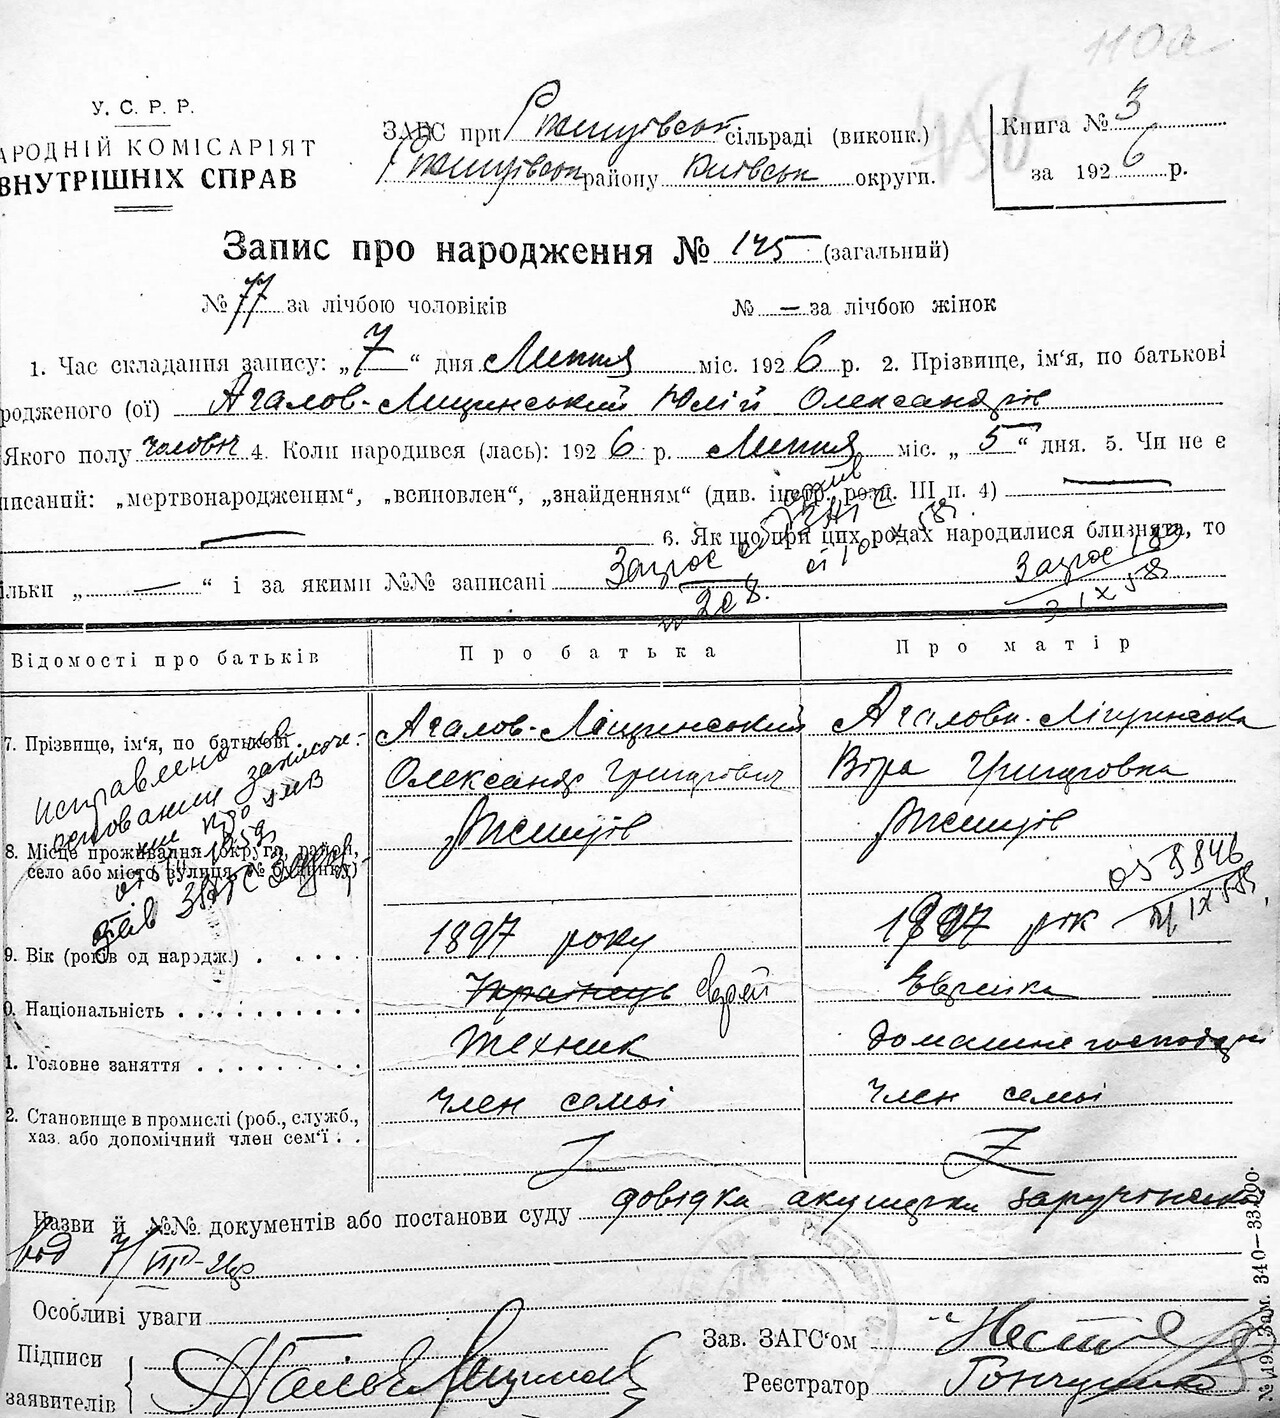 110а
У. С. Р. Р.
АРОДНІЙ КОМІСАРІЯТ
ВНУТРІШНІХ СПРАВ
ЗАГС при Ржищівськ сільраді (виконк.)
Ржищівськ району Київськ округи.
Книга № 3
за 1926 р.
Запис про народження № 145 (загальний)
№ 77 за лічбою чоловіків № — за лічбою жінок
1. Час складання запису: „ 7 “ дня Липня міс. 1926 р. 2. Прізвище, ім‘я, по батькові
родженого (ої) Агалов-Ліщинський Юлій Олександрів
Якого полу чоловіч 4. Коли народився (лась): 1926 р. Липня міс. „ 5 “ дня. 5. Чи не є
писаний: „мертвонародженим“, „всиновлен“, „знайденям“ (див. інстр. розд. III п. 4) —
— 6. Як що при цих родах народилися близнята, то
ільки „ — “ і за якими №№ записані
Запрос
Запрос
Відомості про батьків Про батька Про матір
7. Прізвище, ім‘я, по батькові
Агалов-Ліщинський Агалова-Ліщинська
Олександр Григорович Віра Григоровна
Исправлено на
основании заключе-
8. Місце проживання (округа, район,
село або місто, вулиця, № будинку)
Ржищів Ржищів
9. Вік (років од народж.) 1897 року 1897 рік
0. Національність Українець єврей Євреїка
1. Головне заняття техник домашнє господарі
2. Становище в промислі (роб., служб.,
хаз. або допомічний член сем‘ї
член семьі член семьі
Назви й №№ документів або постанови суду довідка акушерки
від 7/VII-26р
Особливі уваги
Підписи
заявителів
Зав. ЗАГС‘ом
Реєстратор Гончаренко
№ 19. Зам. 340—33.000.